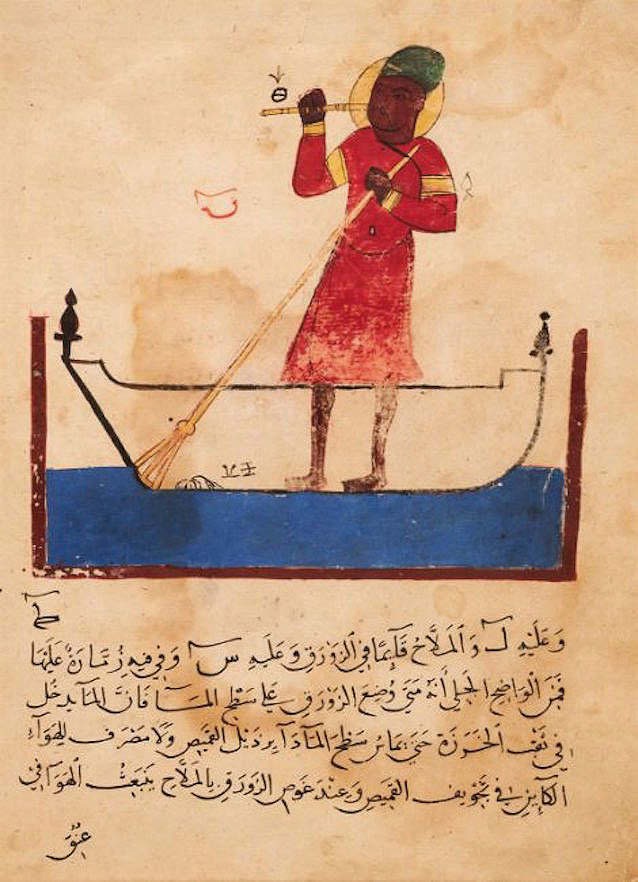 وَعَلَيْهِ لـ وَالمَلَّاحُ قَائِمًا فِي الزَوْرَقِ وَعَلَيهِ س وَفِي فِيهِ زُمَّارَةٌ عَلَيْهَا ط
فَمِنَ الْوَاضِحِ الْجَلِيِّ أَنَّهُ مَتَى وُضِعَ الزَوْرَقُ عَلَى سَطْحِ المَآءِ فَانَّ المَآءَ يدخُل
فِي ثَقْب الْخَرَزَة حَتَى يماسّ سَطْحَ المَآءِ دَآيِرَ ذَيْلِ القَمِيصِ وَلَا مَصْرَف لِلهَوَآءِ
الْكَآيِنِ فِي تَجْوِيفِ القَمِيصِ وَعِنْدَ غَوصِ الزَوْرَقِ بِالمَلَّاحِ يَنْبَعِثُ الْهَوَآ فِي
عُنُقِ